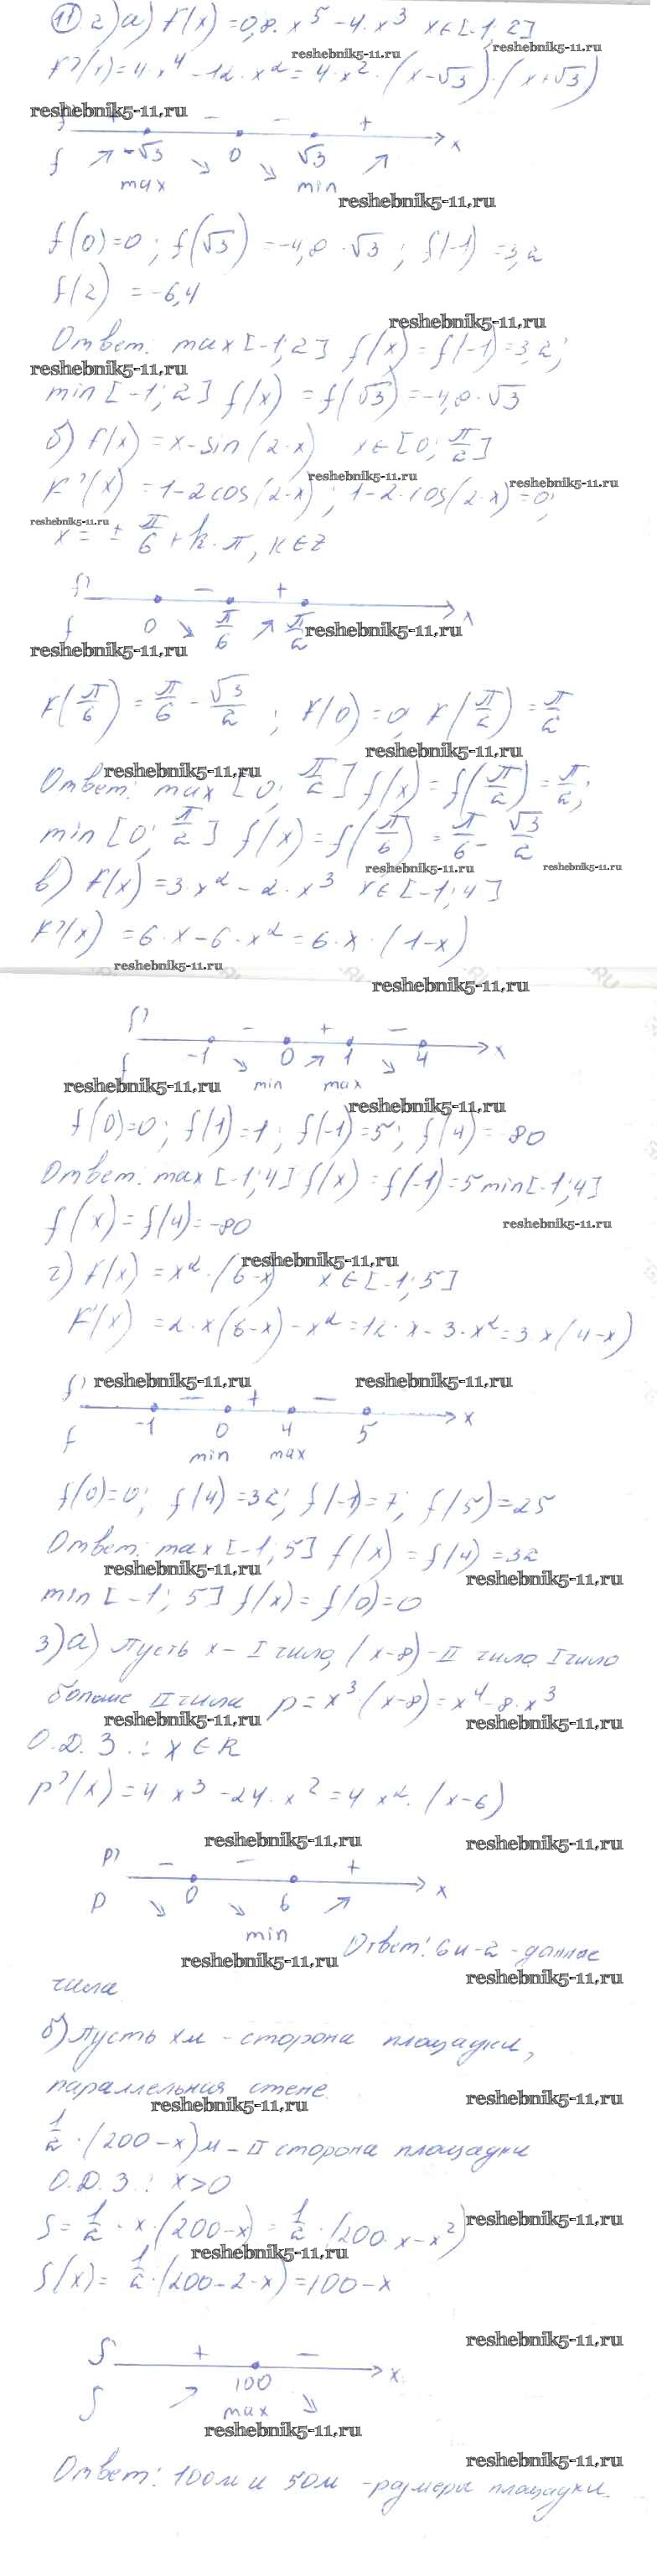 11 2) а) f(x) = 0,8 · x⁵ - 4 · x³ x∈[-1; 2]
reshebnik5-11.ru reshebnik5-11.ru
f'(x) = 4 · x⁴ - 12 · x² = 4 · x² · (x - √3) · (x + √3)
reshebnik5-11.ru
- - +
f ↗ -√3 ↘ 0 ↘ √3 ↗ x
max min
reshebnik5-11.ru
f(0) = 0; f(√3) = -4,8 · √3; f(-1) = 3,2
f(2) = -6,4
reshebnik5-11.ru
Ответ: max [-1; 2] f(x) = f(-1) = 3,2;
reshebnik5-11.ru
min [-1; 2] f(x) = f(√3) = -4,8 · √3
б) f(x) = x - sin(2 · x) x∈[0; π/2]
reshebnik5-11.ru reshebnik5-11.ru
f'(x) = 1 - 2cos(2 · x); 1 - 2 · cos(2 · x) = 0;
reshebnik5-11.ru
x = ± π/6 + k · π, k∈Z
f' - +
f 0 ↘ π/6 ↗ π/2 x
reshebnik5-11.ru
reshebnik5-11.ru
f(π/6) = π/6 - √3/2; f(0) = 0, f(π/2) = π/2
reshebnik5-11.ru
reshebnik5-11.ru
Ответ: max [0; π/2] f(x) = f(π/2) = π/2;
min [0; π/2] f(x) = f(π/6) = π/6 - √3/2
reshebnik5-11.ru reshebnik5-11.ru
в) f(x) = 3x² - 2 · x³ x∈[-1; 4]
f'(x) = 6 · x - 6 · x² = 6 · x · (1 - x)
reshebnik5-11.ru
reshebnik5-11.ru
f' - + -
f -1 ↘ 0 ↗ 1 ↘ 4 x
reshebnik5-11.ru min max
reshebnik5-11.ru
f(0) = 0; f(1) = 1; f(-1) = 5; f(4) = -80
Ответ: max [-1; 4] f(x) = f(-1) = 5 min [-1; 4]
f(x) = f(4) = -80
reshebnik5-11.ru
reshebnik5-11.ru
г) f(x) = x² · (6 - x) x∈[-1; 5]
f'(x) = 2 · x(6 - x) - x² = 12 · x - 3 · x² = 3x(4 - x)
reshebnik5-11.ru reshebnik5-11.ru
f' - + -
f -1 0 4 5 x
min max
f(0) = 0; f(4) = 32; f(-1) = 7; f(5) = 25
Ответ: max [-1; 5] f(x) = f(4) = 32
reshebnik5-11.ru reshebnik5-11.ru
min [-1; 5] f(x) = f(0) = 0
3) а) Пусть x - I число, (x - 8) - II число I число
больше II числа p = x³ · (x - 8) = x⁴ - 8 · x³
reshebnik5-11.ru reshebnik5-11.ru
О.Д.З.: x∈R
p'(x) = 4x³ - 24 · x² = 4x² · (x - 6)
reshebnik5-11.ru reshebnik5-11.ru
p' - - +
p ↘ 0 ↘ 6 ↗ x
min Ответ: 6 и -2 - данные
reshebnik5-11.ru reshebnik5-11.ru
числа
б) Пусть x м - сторона площадки,
параллельная стене.
reshebnik5-11.ru reshebnik5-11.ru
1/2 · (200 - x) м - II сторона площадки
О.Д.З.: x > 0
S = 1/2 · x · (200 - x) = 1/2 · (200 · x - x²)
reshebnik5-11.ru
reshebnik5-11.ru
S'(x) = 1/2 · (200 - 2 · x) = 100 - x
reshebnik5-11.ru
S' + -
S ↗ 100 ↘ x
max
reshebnik5-11.ru
reshebnik5-11.ru
Ответ: 100м и 50м - размеры площадки.